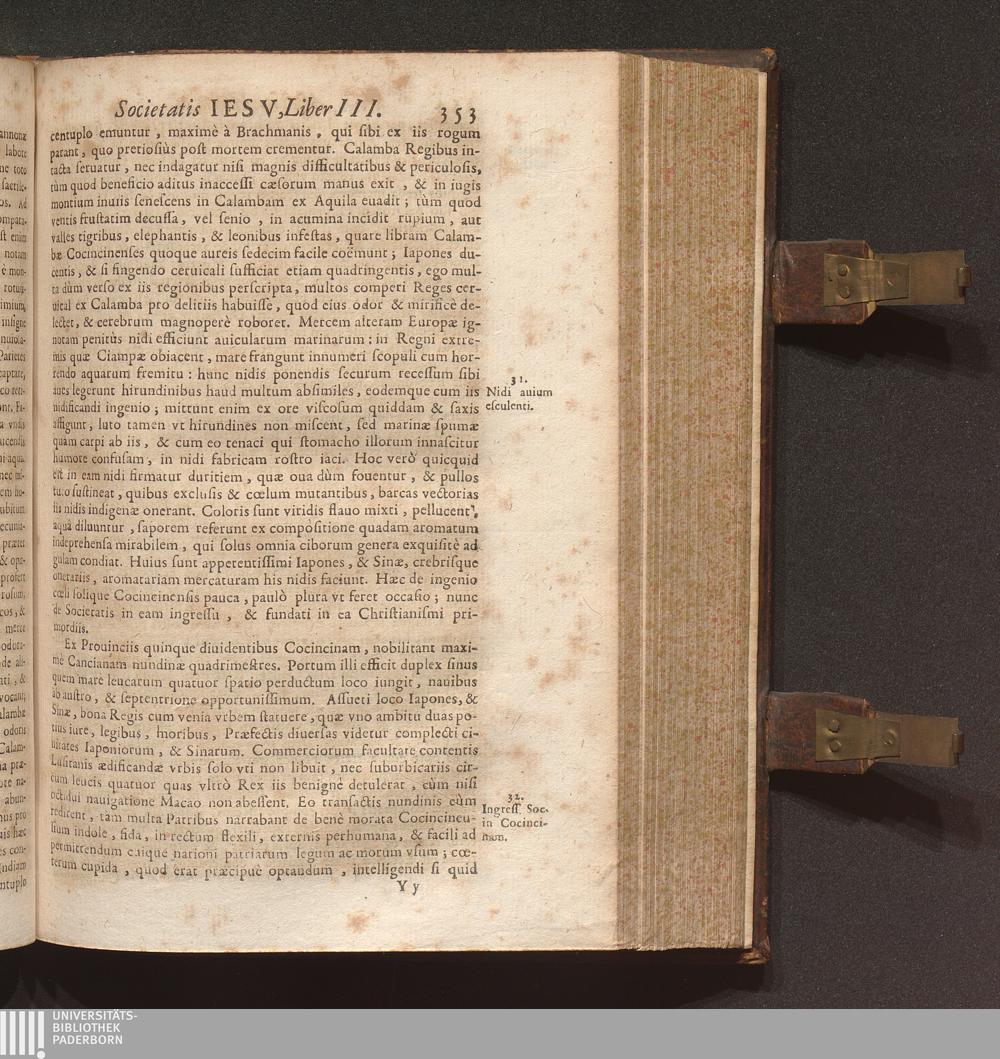 Societatis IESV, Liber III. 353
centuplo emuntur, maximè à Brachmanis, qui sibi ex iis rogum
parant, quo pretiosiùs post mortem crementur. Calamba Regibus in-
tacta seruatur, nec indagatur nisi magnis difficultatibus & periculosis,
tùm quod beneficio aditus inaccessi cæsorum manus exit, & in iugis
montium inuiis senescens in Calambam ex Aquila euadit; tùm quod
ventis frustatim decussa, vel senio, in acumina incidit rupium, aut
valles tigribus, elephantis, & leonibus infestas, quare libram Calam-
bæ Cocincinenses quoque aureis sedecim facile coëmunt; Iapones du-
centis, & si fingendo ceruicali sufficiat etiam quadringentis, ego mul-
ta dùm verso ex iis regionibus perscripta, multos comperi Reges cer-
uical ex Calamba pro delitiis habuisse, quod eius odor & mirificè de-
lectet, & cerebrum magnoperè roboret. Mercem alteram Europæ ig-
notam penitùs nidi efficiunt auicularum marinarum: in Regni extre-
mis quæ Ciampæ obiacent, mare frangunt innumeri scopuli cum hor-
rendo aquarum fremitu: hunc nidis ponendis securum recessum sibi
aues legerunt hirundinibus haud multum absimiles, eodemque cum iis
nidificandi ingenio; mittunt enim ex ore viscosum quiddam & saxis
affigunt, luto tamen vt hirundines non miscent, sed marinæ spumæ
quam carpi ab iis, & cum eo tenaci qui stomacho illorum innascitur
humore confusam, in nidi fabricam rostro iaci. Hoc verò quicquid
est in eam nidi firmatur duritiem, quæ oua dùm fouentur, & pullos
tutò sustineat, quibus exclusis & cœlum mutantibus, barcas vectorias
iis nidis indigenæ onerant. Coloris sunt viridis flauo mixti, pellucent,
aquâ diluuntur, saporem referunt ex compositione quadam aromatum
indeprehensa mirabilem, qui solus omnia ciborum genera exquisitè ad
gulam condiat. Huius sunt appetentissimi Iapones, & Sinæ, crebrisque
onerariis, aromatariam mercaturam his nidis faciunt. Hæc de ingenio
cœli solique Cocincinensis pauca, paulò plura vt feret occasio; nunc
de Societatis in eam ingressu, & fundati in ea Christianismi pri-
mordiis.
31.
Nidi auium
esculenti.
Ex Prouinciis quinque diuidentibus Cocincinam, nobilitant maxi-
mè Cancianam nundinæ quadrimestres. Portum illi efficit duplex sinus
quem mare leucarum quatuor spatio perductum loco iungit, nauibus
ab austro, & septentrione opportunissimum. Assueti loco Iapones, &
Sinæ, bona Regis cum venia vrbem statuere, quæ vno ambitu duas po-
tius iure, legibus, moribus, Præfectis diuersas videtur complecti ci-
uitates Iaponiorum, & Sinarum. Commerciorum facultate contentis
Lusitanis ædificandæ vrbis solo vti non libuit, nec suburbicariis cir-
cum leucis quatuor quas vltrò Rex iis benignè detulerat, cùm nisi
octidui nauigatione Macao non abessent. Eo transactis nundinis cùm
redirent, tam multa Patribus narrabant de benè morata Cocincinen-
sium indole, fida, in rectum flexili, externis perhumana, & facili ad
permittendum cuique nationi patriarum legum ac morum vsum; cœ-
terum cupida, quod erat præcipuè optandum, intelligendi si quid
32.
Ingress. Soc.
in Cocinci-
nam.
Yy
UNIVERSITÄTS-
BIBLIOTHEK
PADERBORN